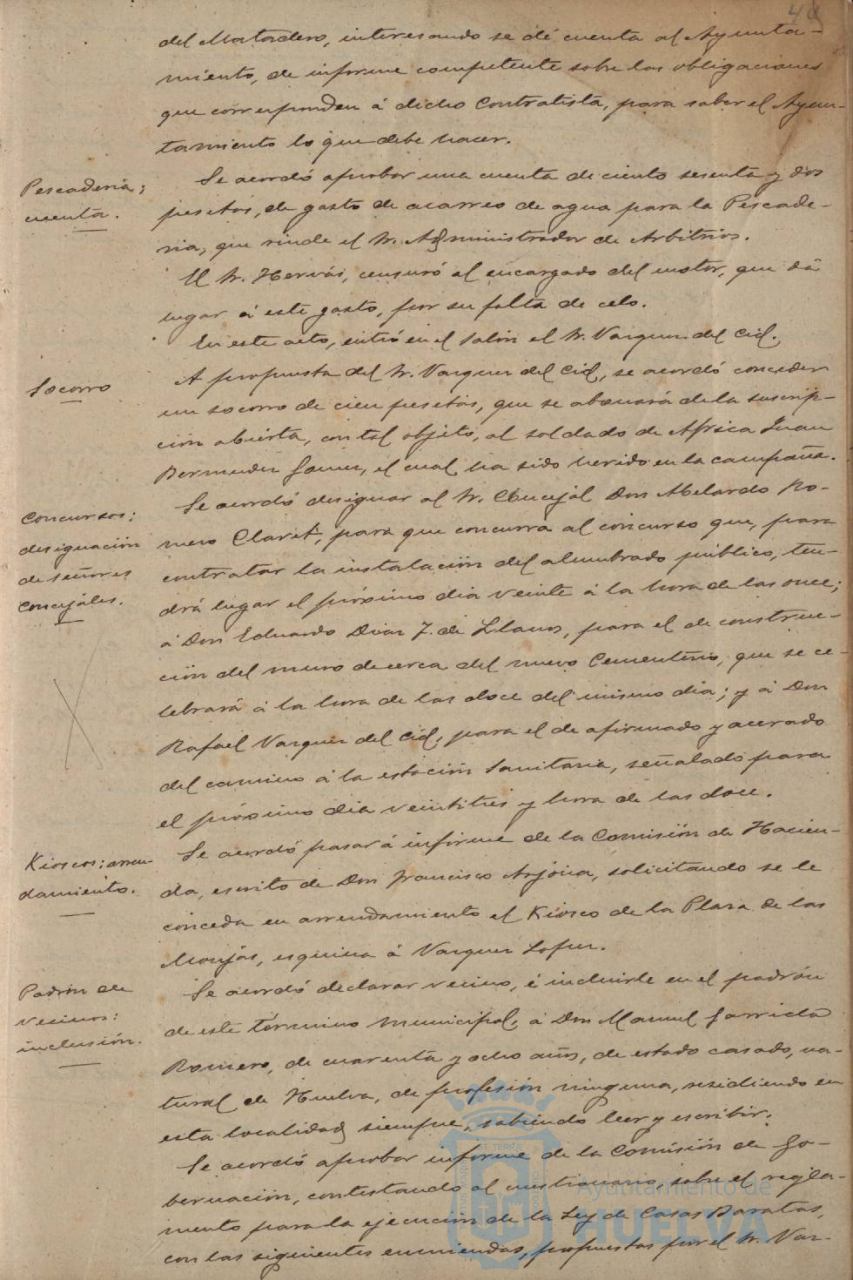 del Matadero, interesando se dé cuenta al Ayunta-
miento, de informe competente sobre las obligaciones
que corresponden á dicho Contratista, para saber el Ayun-
tamiento lo que debe hacer.
Pescaderia;
cuenta.
Se acordó aprobar una cuenta de ciento sesenta y dos
pesetas, de gasto de acarreo de agua para la Pescade-
ria, que rinde el Sr. Administrador de Arbitrios.
El Sr. Hervás, censuró al encargado del motor, que dá
lugar á este gasto, por su falta de celo.
En este acto, entró en el Salón el Sr. Vazquez del Cid.
Socorro
A propuesta del Sr. Vazquez del Cid, se acordó conceder
un socorro de cien pesetas, que se abonará de la suscrip-
ción abierta, con tal objeto, al soldado de Africa Juan
Bermudez Gomez, el cual ha sido herido en la campaña.
Concursos:
designación
de señores
Concejales.
Se acordó designar al Sr. Concejal Don Abelardo Ro-
mero Claret, para que concurra al concurso que, para
contratar la instalación del alumbrado público, ten-
drá lugar el próximo dia veinte á la hora de las once;
á Don Eduardo Diaz F. de Llanos, para el de construc-
ción del muro de cerca del nuevo Cementerio, que se ce-
lebrará á la hora de las doce del mismo dia; y á Don
Rafael Vazquez del Cid, para el de afirmado y acerado
del camino á la estación Sanitaria, señalado para
el próximo dia veintitres y hora de las doce.
Kioscos: arren-
damiento.
Se acordó pasar á informe de la Comisión de Hacien-
da, escrito de Don Francisco Anjoira, solicitando se le
conceda en arrendamiento el Kiosco de la Plaza de las
Monjas, esquina á Vazquez Lopez.
Padrón de
vecinos:
inclusión.
Se acordó declarar vecino, é incluirle en el padrón
de este término municipal, á Don Manuel Garrido
Romero, de cuarenta y ocho años, de estado casado, na-
tural de Huelva, de profesión ninguna, residiendo en
esta localidad siempre, sabiendo leer y escribir.
Se acordó aprobar informe de la Comisión de Go-
bernación, contestando al cuestionario sobre el regla-
mento para la ejecución de la Ley de Casas Baratas,
con las siguientes enmiendas, propuestas por el Sr. Vaz-
Ayuntamiento de
HUELVA